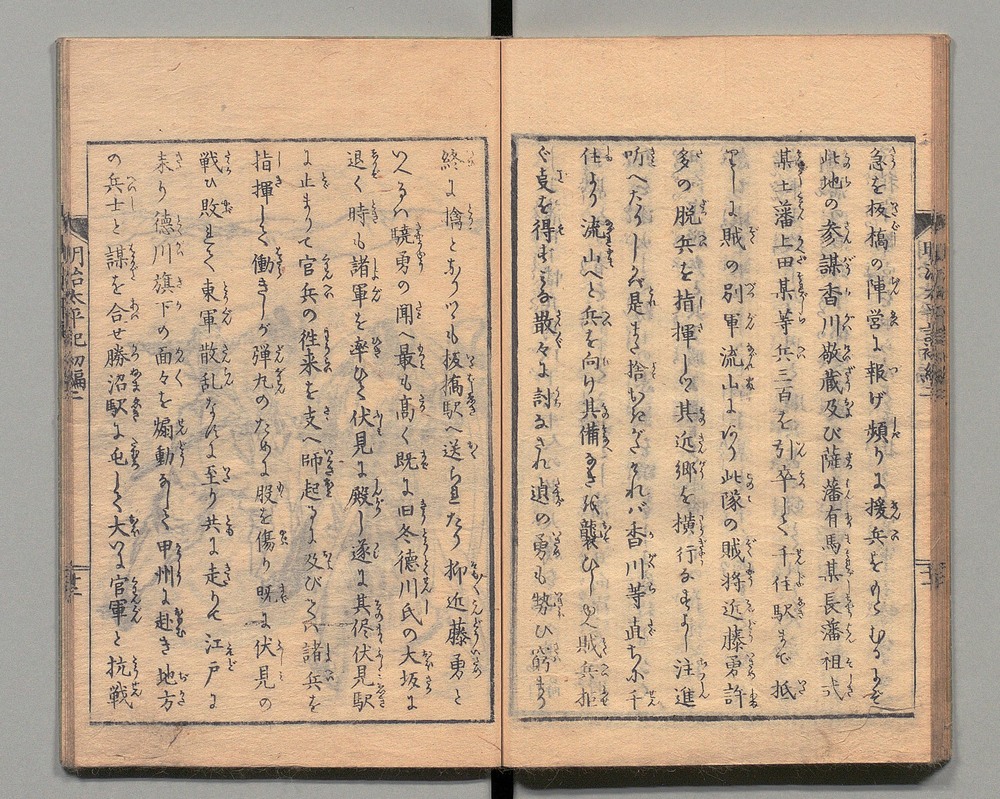 急を板橋の陣営に報げ頻りに援兵をもとむるにぞ
此地の参謀香川敬蔵及び薩藩有馬某長藩祖式
某土藩上田某等兵三百を引卒して千住駅まで抵
りしに賊の別軍流山にあり此隊の賊将近藤勇許
多の脱兵を指揮しつ其近郷を横行なすよし注進
聞へたりしかば是まさ捨おきがたければ香川等直ちに千
住より流山へと兵を向け其備なきを襲ひしかば賊兵拒
ぐ事を得ずして散々に討なされ
の勇も勢ひ窮まり
終に擒となりつも板橋駅へ送られたり抑近藤勇と
いへるハ驍勇の聞へ最も高く既に旧冬徳川氏の大坂に
退く時も諸軍を率ひて伏見に殿し遂に其侭伏見駅
に止まりて官兵の往来を支へ師起るに及びてハ諸兵を
指揮して働きしが弾丸のために股を傷り既に伏見の
戦ひ敗れて東軍散乱なすに至り共に走りて江戸に
来り徳川旗下の面々を煽動なして甲州に赴き地方
の兵士と謀を合せ勝沼駅に屯して大いに官軍と抗戦
明治太平記初編二